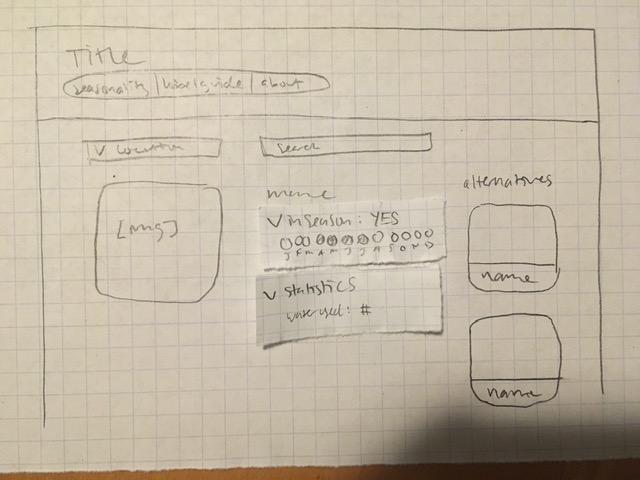 Title
seasonality | | about
V Location
search
[img]
name
V in season: YES
J F M A M J J A S O N D
V Statistics
water used: #
alternatives
name
name